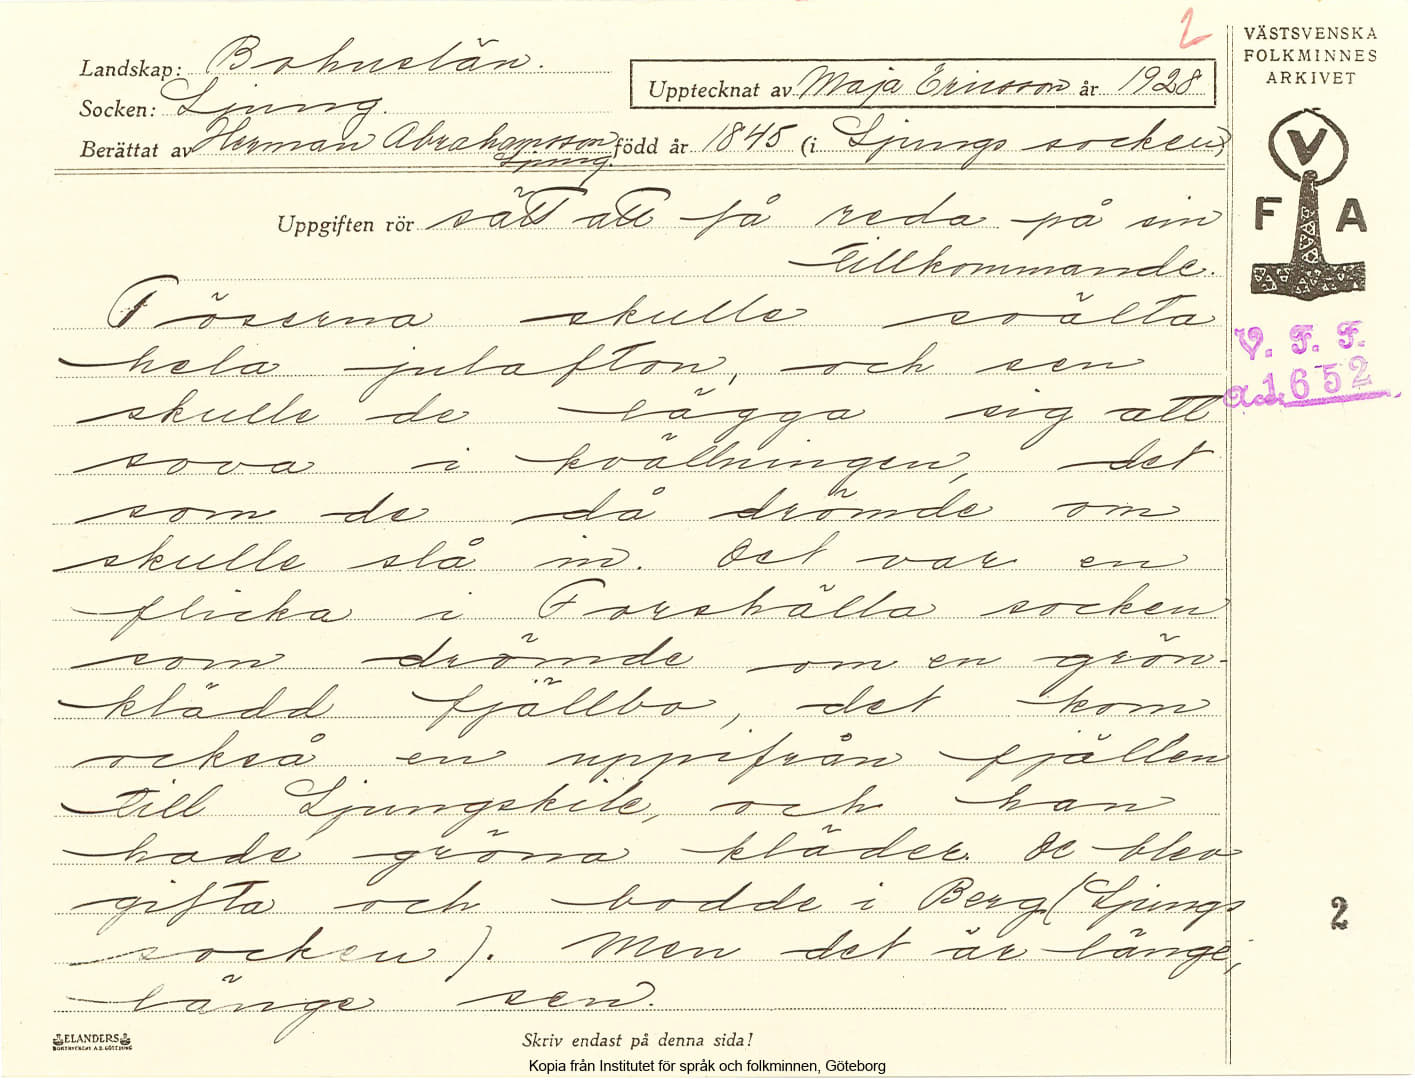 2
VÄSTSVENSKA
FOLKMINNES
ARKIVET
V
F A
Landskap: Bohuslän.
Upptecknat av Maja Ericsson år 1928
Socken: Ljung.
Berättat av Herman Abrahamsson född år 1845 (i Ljungs socken)
Ljung.
Uppgiften rör sätt att få reda på sin
tillkommande.
Töserna skulle svälta
hela julafton, och sen
skulle de lägga sig att
sova i kvällningen, det
som de då drömde om
skulle slå in. Det var en
flicka i Forshälla socken
som drömde om en grön-
klädd fjällbo, det kom
också en uppifrån fjällen
till Ljungskile, och han
hade gröna kläder. De blev
gifta och bodde i Berg (Ljungs
socken). Men det är länge,
länge sen.
V. F. F.
Acc. 1652
2
ELANDERS
BOKTRYCKERI A.B. GÖTEBORG
Skriv endast på denna sida!
Kopia från Institutet för språk och folkminnen, Göteborg